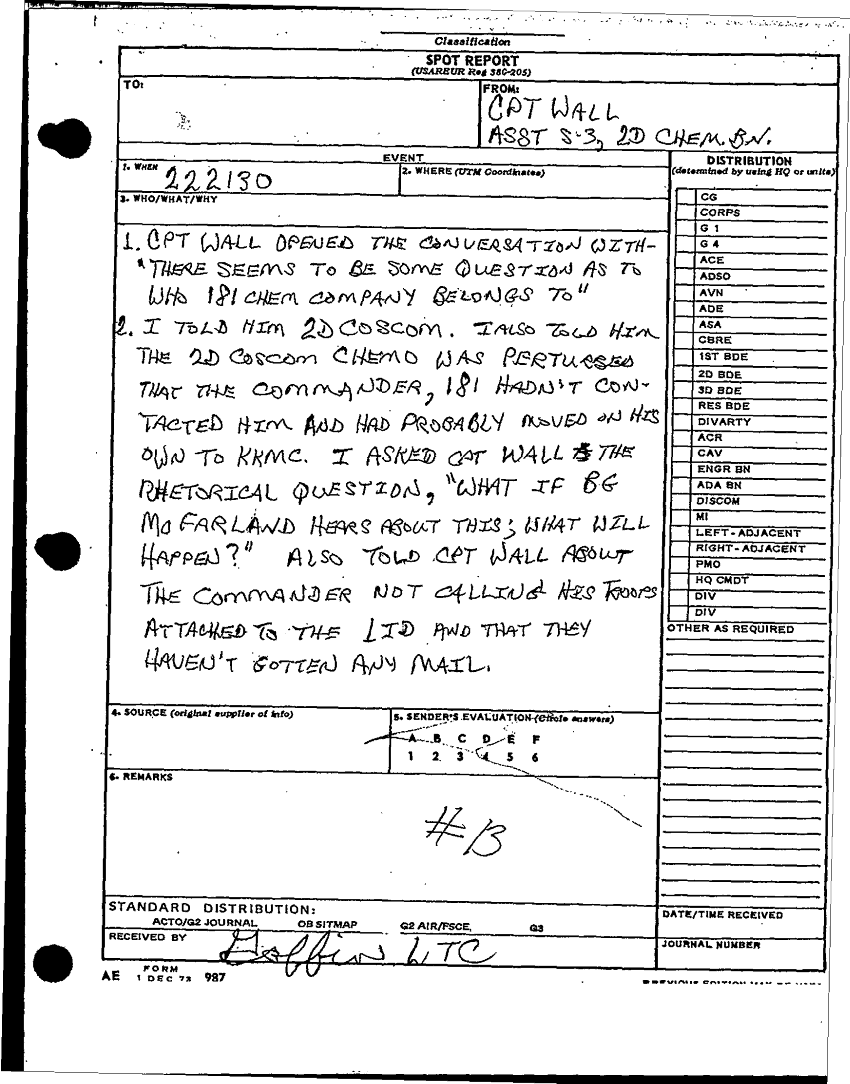 Classification
SPOT REPORT
(USAREUR Reg 380-205)
TO:
FROM:
CPT WALL
ASST S-3, 2D CHEM. BN.
EVENT
1. WHEN
222130
2. WHERE (UTM Coordinates)
3. WHO/WHAT/WHY
1. CPT WALL OPENED THE CONVERSATION WITH-
"THERE SEEMS TO BE SOME QUESTION AS TO
WHO 181 CHEM COMPANY BELONGS TO"
2. I TOLD HIM 2D COSCOM. I ALSO TOLD HIM
THE 2D COSCOM CHEMO WAS PERTURBED
THAT THE COMMANDER, 181 HADN'T CON-
TACTED HIM AND HAD PROBABLY MOVED ON HIS
OWN TO KKMC. I ASKED CPT WALL THE
RHETORICAL QUESTION, "WHAT IF BG
MCFARLAND HEARS ABOUT THIS; WHAT WILL
HAPPEN?" ALSO TOLD CPT WALL ABOUT
THE COMMANDER NOT CALLING HIS TROOPS
ATTACHED TO THE 1ID AND THAT THEY
HAVEN'T GOTTEN ANY MAIL.
4. SOURCE (original supplier of info)
5. SENDER'S EVALUATION (Circle answers)
A B C D E F
1 2 3 4 5 6
6. REMARKS
#13
DISTRIBUTION
(determined by using HQ or units)
CG
CORPS
G 1
G 4
ACE
ADSO
AVN
ADE
ASA
CBRE
1ST BDE
2D BDE
3D BDE
RES BDE
DIVARTY
ACR
CAV
ENGR BN
ADA BN
DISCOM
MI
LEFT-ADJACENT
RIGHT-ADJACENT
PMO
HQ CMDT
DIV
DIV
OTHER AS REQUIRED
STANDARD DISTRIBUTION:
ACTO/G2 JOURNAL OB SITMAP G2 AIR/FSCE, G3
RECEIVED BY
LTC
DATE/TIME RECEIVED
JOURNAL NUMBER
AE FORM 1 DEC 73 987